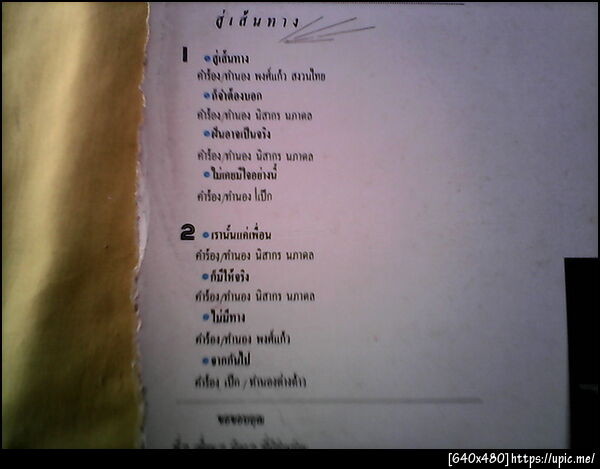 สู่เส้นทาง
1 •สู่เส้นทาง
คำร้อง/ทำนอง พงศ์แก้ว สงวนไทย
•ก็จำต้องบอก
คำร้อง/ทำนอง นิสากร นภาดล
•ฝันอาจเป็นจริง
คำร้อง/ทำนอง นิสากร นภาดล
•ไม่เคยมีใจอย่างนี้
คำร้อง/ทำนอง เป๊ก
2 •เรานั้นแค่เพื่อน
คำร้อง/ทำนอง นิสากร นภาดล
•ก็มีให้จริง
คำร้อง/ทำนอง นิสากร นภาดล
•ไม่มีทาง
คำร้อง/ทำนอง พงศ์แก้ว
•จากกันไป
คำร้อง เป๊ก / ทำนองต่างด้าว
ขอขอบคุณ
[640x480]https://upic.me/